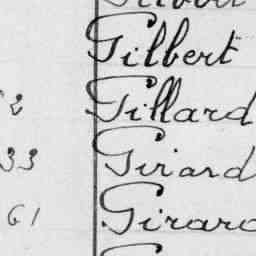 Gilbert
2 Gillard
33 Girard
61 Girard